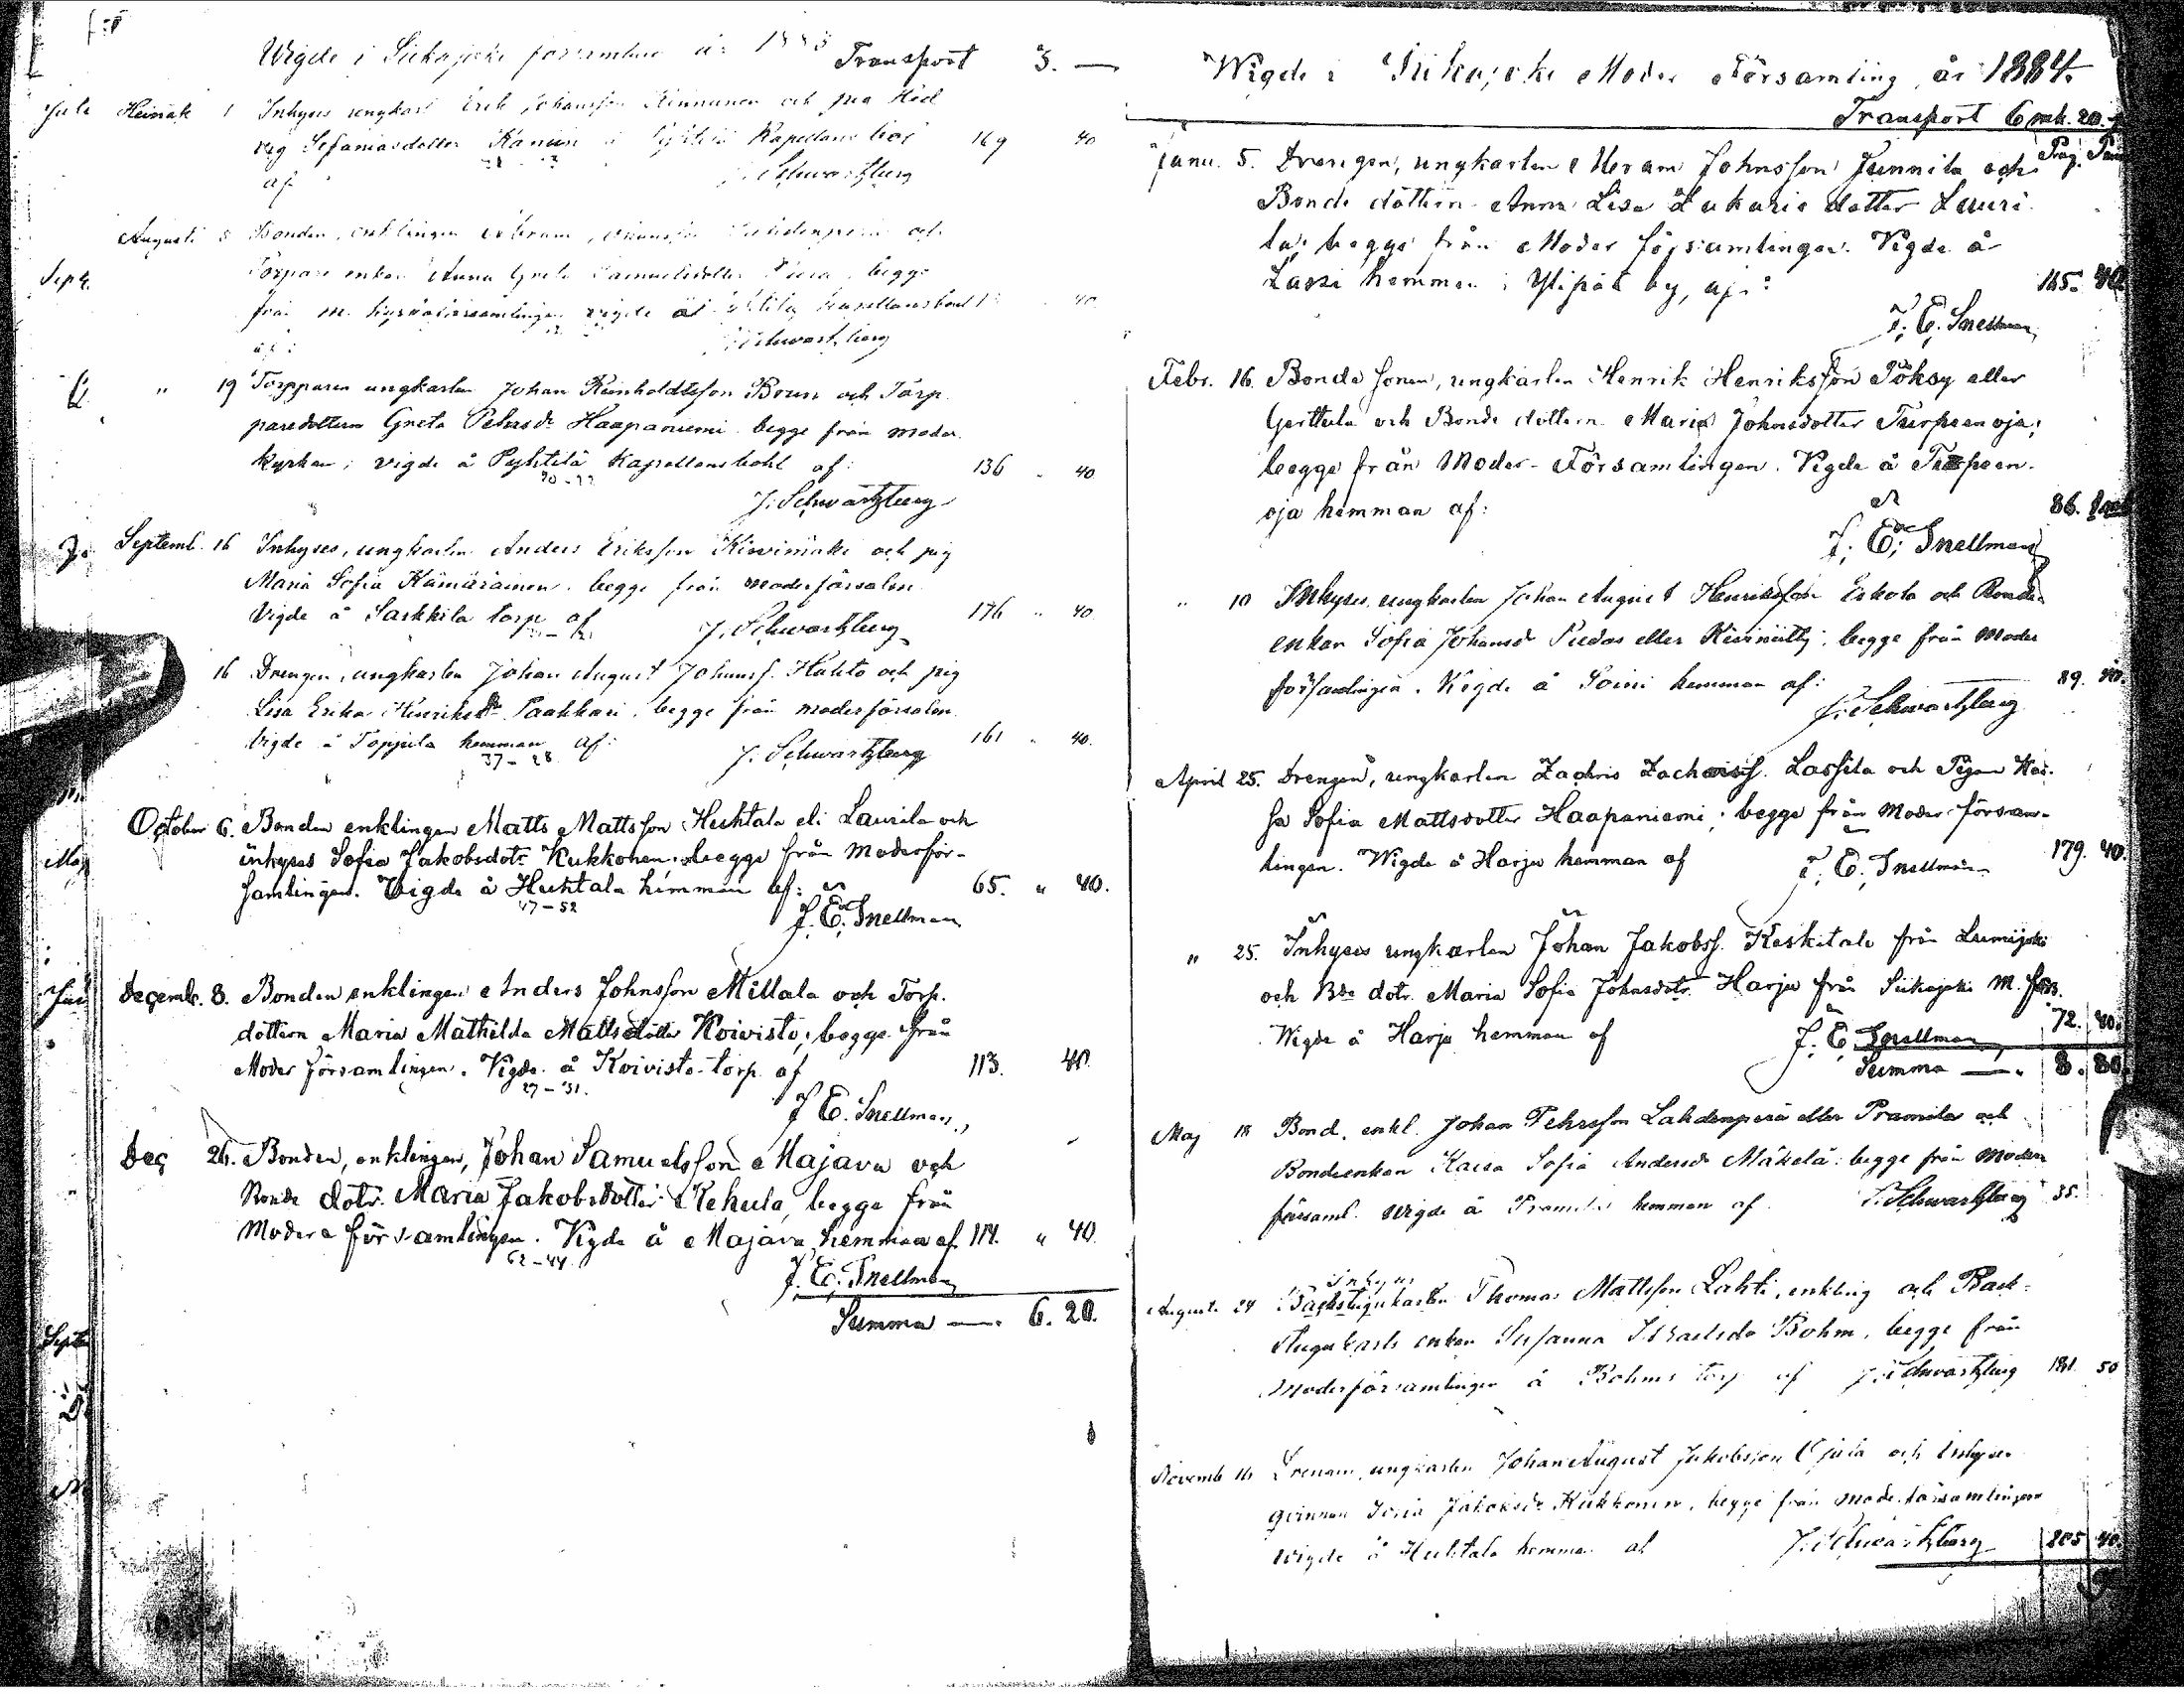 Wigde i Siikajoki församling år 1883 Transport 3. —
Juli Heinäk 1 Inhyses ungkarl Erik Johansson Kinnunen och pig Hed
vig Sefaniasdotter Kapellans bol 169 40
af J. Schwartzberg
Augusti 8 Bonden, enklingen
Torpare enkan Anna Greta Samuelsdotter begge
från m. kyrkoförsamlingen vigde å Kapellansbohl 40
af: J. Schwartzberg
" 19 Torpparen ungkarlen Johan Reinholdtsson Brun och Torp
paredottern Greta Pehrsdr Haapaniemi begge från moder
kyrkan; vigde å Pyhtilä Kapellansbohl af: 136 " 40
J. Schwartzberg
Septemb. 16 Inhyses, ungkarlen Anders Eriksson Kivimäki och pig
Maria Sofia Kämäräinen, begge från moderförsaln
Vigde å Sarkkila torp af J. Schwartzberg 176 " 40.
16 Drengen, ungkarlen Johan August Johanss. Huhto och pig
Lisa Erika Henriksdr Paakkari, begge från moderförsaln
Vigde å Toppila hemman af: J. Schwartzberg 161 " 40.
37 – 28
October 6. Bonden enklingen Matts Mattsson Huhtala el: Laurila och
inhyses Sofia Jakobsdotr Kukkonen, begge från Moderför-
samlingen. Vigde å Huhtala hemman af: 65. " 40.
47 – 52 J. E. Snellman
Decemb. 8. Bonden enklingen Anders Johnsson Millala och Torp.
dottern Maria Mathilda Mattsdotter Koivisto; begge från
Moder församlingen. Vigde å Koivisto torp af 113. 40.
27 – 31. J. E. Snellman,
Dec 26. Bonden, enklingen, Johan Samuelsson Majava och
Bonde dotr. Maria Jakobsdotter Kehula, begge från
Moder församlingen. Vigde å Majava hemman af 114. " 40.
62 – 44. J. E. Snellman
Summa — 6. 20.
Wigde i Siikajoki Moder Församling år 1884.
Transport 6 mk. 20.
Janu. 5. Drengen, ungkarlen Abram Johnsson Junnila och Pag.
Bonde dottern Anna Lisa Zakaris dotter Lauri
la; begge från Moder församlingen. Vigde å
Lassi hemman i Ylipää by, af: 145. 40
J. E. Snellman,
Febr. 16. Bonde sonen, ungkarlen Henrik Henriksson Pöksy eller
Gerttula och Bonde dottern Maria Johnsdotter Turpeenoja;
begge från Moder-Församlingen. Vigde å Turpeen-
oja hemman af: 86.
J. E. Snellman
" 10 Inhyses ungkarlen Johan August Henriksson Eskola och Bonde
enkan Sofia Johansd Piedas eller, begge från moder
församlingen. Vigde å Soini hemman af: 89. 40.
J. Schwartzberg
April 25. Drengen, ungkarlen Zachris Zachriss. Lassila och Pigan Kai-
sa Sofia Mattsdotter Haapaniemi; begge från Moder försam-
lingen. Wigde å Harju hemman af J. E. Snellman 179. 40.
" 25. Inhyses ungkarlen Johan Jakobss. Keskitalo från Lumijoki
och Bde dotr. Maria Sofia Johnsdotr Harju från Siikajoki M. förs.
Wigde å Harju hemman af J. E. Snellman 72. 40.
Summa — 8. 80
Maj 18 Bond. enkl. Johan Pehrsson Lahdenperä eller Pramila och
Bondeenkan Kaisa Sofia Andersd Mäkelä: begge från Moder
församl. vigde å Pramila hemman af J. Schwartzberg 35.
Inhyses
August. 24 Backstugukarlen Thomas Mattsson Lahti, enkling och Back-
stugukarls enkan Susanna Israelsdr Bohm, begge från
Moderförsamlingen å Bohms torp af J. Schwartzberg 181. 50
Novemb 16 Drengen, ungkarlen Johan August Jakobsson Ojala och Inhyses
qvinnan Sofia Jakobsdr Kukkonen, begge från moderförsamlingen
Wigde å Huhtala hemman af J. Schwartzberg 205 40.